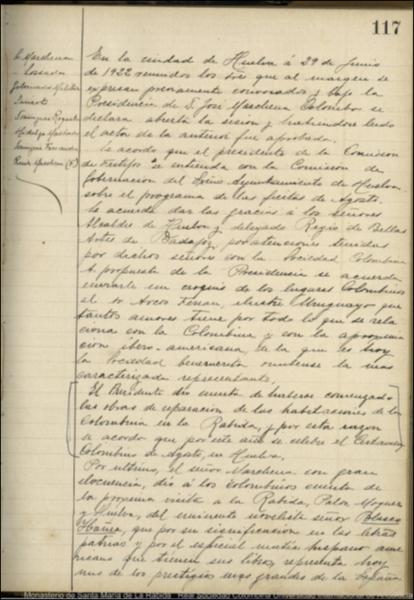 117
S. Marchena
Gobernador Militar
Marchena (F)
En la ciudad de Huelva á 29 de Junio
de 1922 reunidos los Sres que al margen se
expresan previamente convocados y bajo la
Presidencia de D. José Marchena Colombo se
declara abierta la sesión y habiéndose leido
el acta de la anterior fué aprobada.
Se acordó que el presidente de la Comisión
de Festejos se entienda con la Comisión de
Gobernación del Excmo Ayuntamiento de Huelva
sobre el programa de las fiestas de Agosto.
Se acuerda dar las gracias á los señores
Alcalde de Huelva y delegado Regio de Bellas
Artes de Badajoz, por atenciones tenidas
por dichos señores con la Sociedad Colombina
A propuesta de la Presidencia se acuerda
enviarle un croquis de los lugares Colombinos
al Sr Arcos Ferran, ilustre Uruguayo que
tantos amores tiene por todo lo que se rela
ciona con la Colombina y con la aproxima
ción ibero-americana, de la que es hoy
la Sociedad benemérita onubense la más
caracterizada representante.
El Presidente dio cuenta de haberse comenzado
las obras de reparación de las habitaciones de la
Colombina en la Rabida, y por esta razón
se acordó que por este año se celebre el Certamen
Colombino de Agosto, en Huelva.
Por ultimo, el señor Marchena con gran
elocuencia, dió á los colombinos cuenta de
la proxima visita á la Rabida, Palos, Moguer
y Huelva, del eminente novelista señor Blasco
Ibañez, que por su significación en las letras
patrias y por el especial matiz hispano ame
ricano que tienen sus libros, representa hoy
uno de los prestigios mas grandes de la España
Monasterio de Santa María de La Rábida. Real Sociedad Colombina